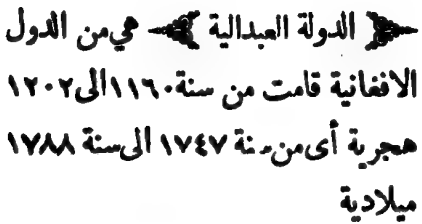 الدولة العبدالية هي من الدول
الافغانية قامت من سنة ١١٦٠ الى ١٢٠٢
هجرية أى من سنة ١٧٤٧ الى سنة ١٧٨٨
ميلادية